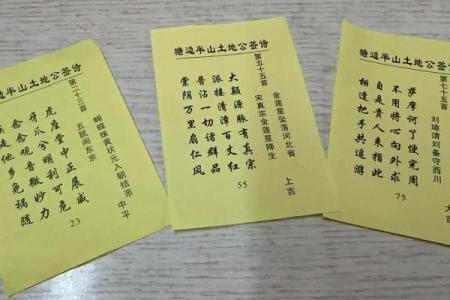 塘边半山土地公签诗
第二十三首
蝴蝶珠黄状元入朝结亲 中平
五鼠闹东京
虎座堂中正展威
牙爪兮明利可危
念念观音微妙力
走他乡免祸随
23
塘边半山土地公签诗
第五十五首
金莲星坠落河北省 上吉
宋真宗金莲星降生
大颛源脉有真宗
派接清漳百丈红
普沾一切诸群品
崇阴万里扇仁风
55
塘边半山土地公签诗
第七十五首
刘璋请刘备守西川
萨摩诃了便完周
不用将心向外求
自是贵人来指此
相逢把手共追游
75